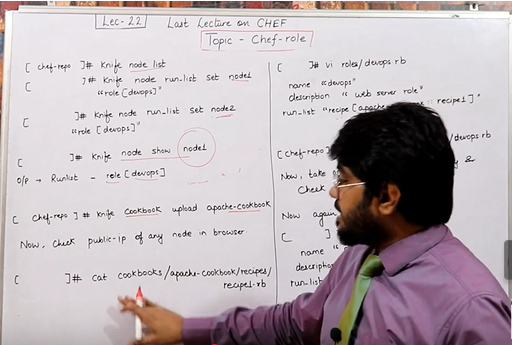 Lec-22 Last Lecture on CHEF
Topic - Chef-role
[ chef-repo ]# knife node list
[ ]# knife node run-list set node1
"role [devops]"
[ ]# knife node run-list set node2
"role [devops]"
[ ]# knife node show node1
O/P → Runlist - role [devops]
[ chef-repo ]# knife cookbook upload apache-cookbook
Now, check public-ip of any node in browser
[ ]# cat cookbooks/apache-cookbook/recipes/
recipe1.rb
[ ]# vi roles/devops.rb
name "devops"
description " web server role"
run_list "recipe [apache :: recipe1 ] "
[ chef-repo ] /devops.rb
Now, take &
Check
Now again
[ ]
name "
description
run-list